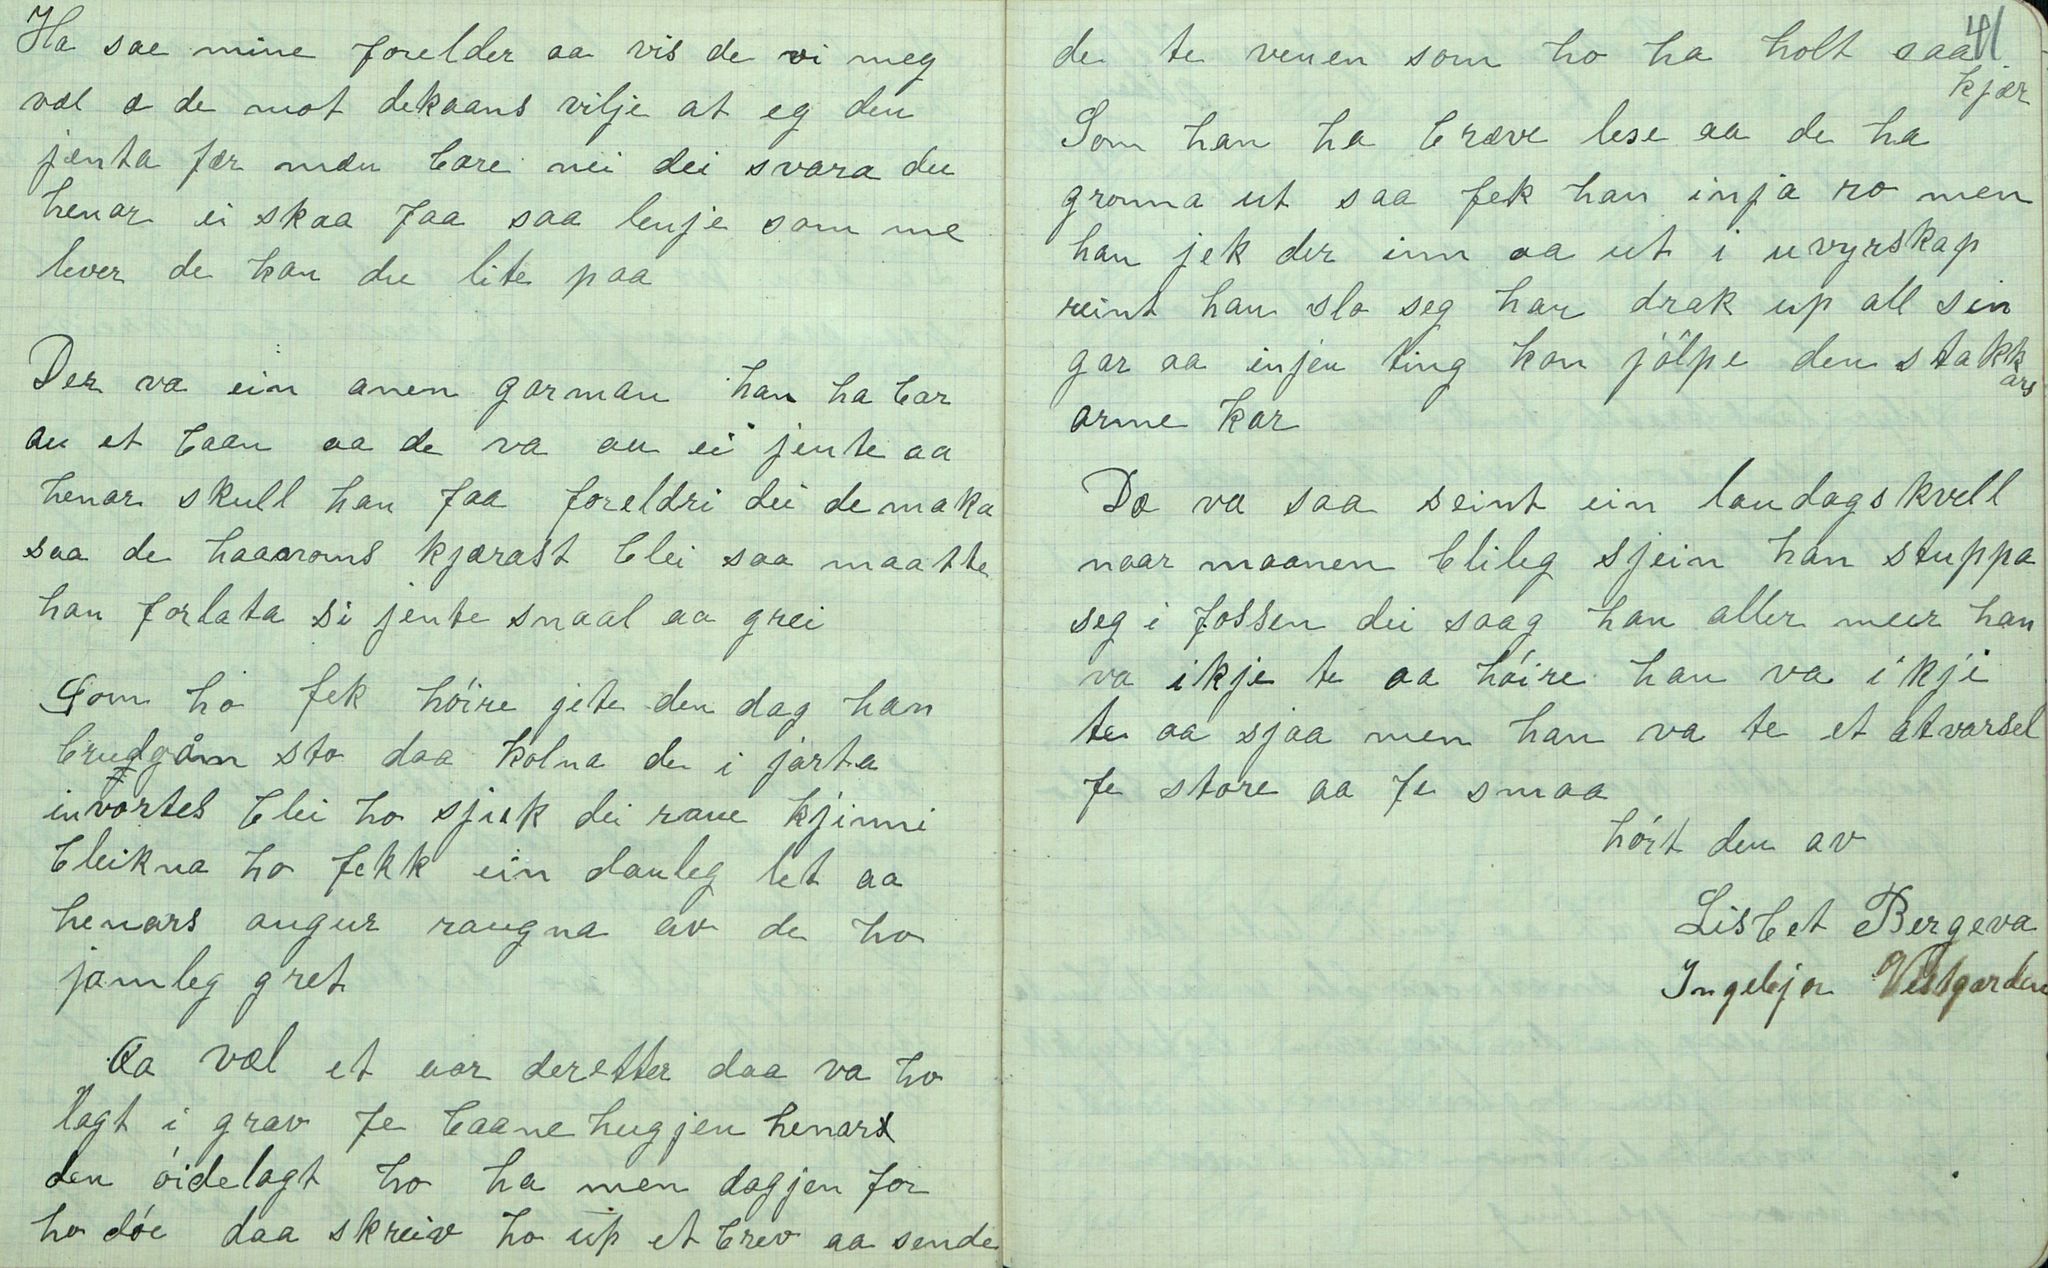 Ha sae mine forelder aa vis de vi meg
væl æ de mot dekaans vilje at eg den
jenta fær mæn bare nei dei svara du
henar ei skaa faa saa lenje som me
lever de kan du lite paa
Der va ein anen garman han ha bar
au et baan aa de va au ei jente aa
henar skull han faa foreldri dei de maka
saa de haanroms kjærast blei saa maatte
han forlata si jente snaal aa grei
Som ho fek höire jete den dag han
brudgåm sto daa kolna de i jarta
invortes blei ho sjuk dei raue kjinni
bleikna ho fekk ein dauleg let aa
henars augur raugna av de ho
jamleg gret
Aa væl et aar deretter daa va ho
lagt i grav fe baanehugjen henars
den öidelagt ho ha men dagjen för
ho döe daa skreiv ho up et brev aa sende
41
de te venen som ho ha holt saa
kjær
Som han ha bræve lese aa de ha
gronna ut saa fek han inja ro men
han jek der inn aa ut i uvyrskap
reint han slo seg han drak up all sin
gar aa injen ting kan jölpe den stakk
ars
arme kar
De va saa seint ein laudagskvell
naar maanen blileg sjein han stuppa
seg i fossen dei saag han aller meer han
va ikje te aa höire han va ikje
te aa sjaa men han va te et atvarsel
fe store aa fe smaa
hört den av
Lisbet Bergeva
Ingebjør Vestgarden